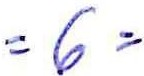 = 6 =